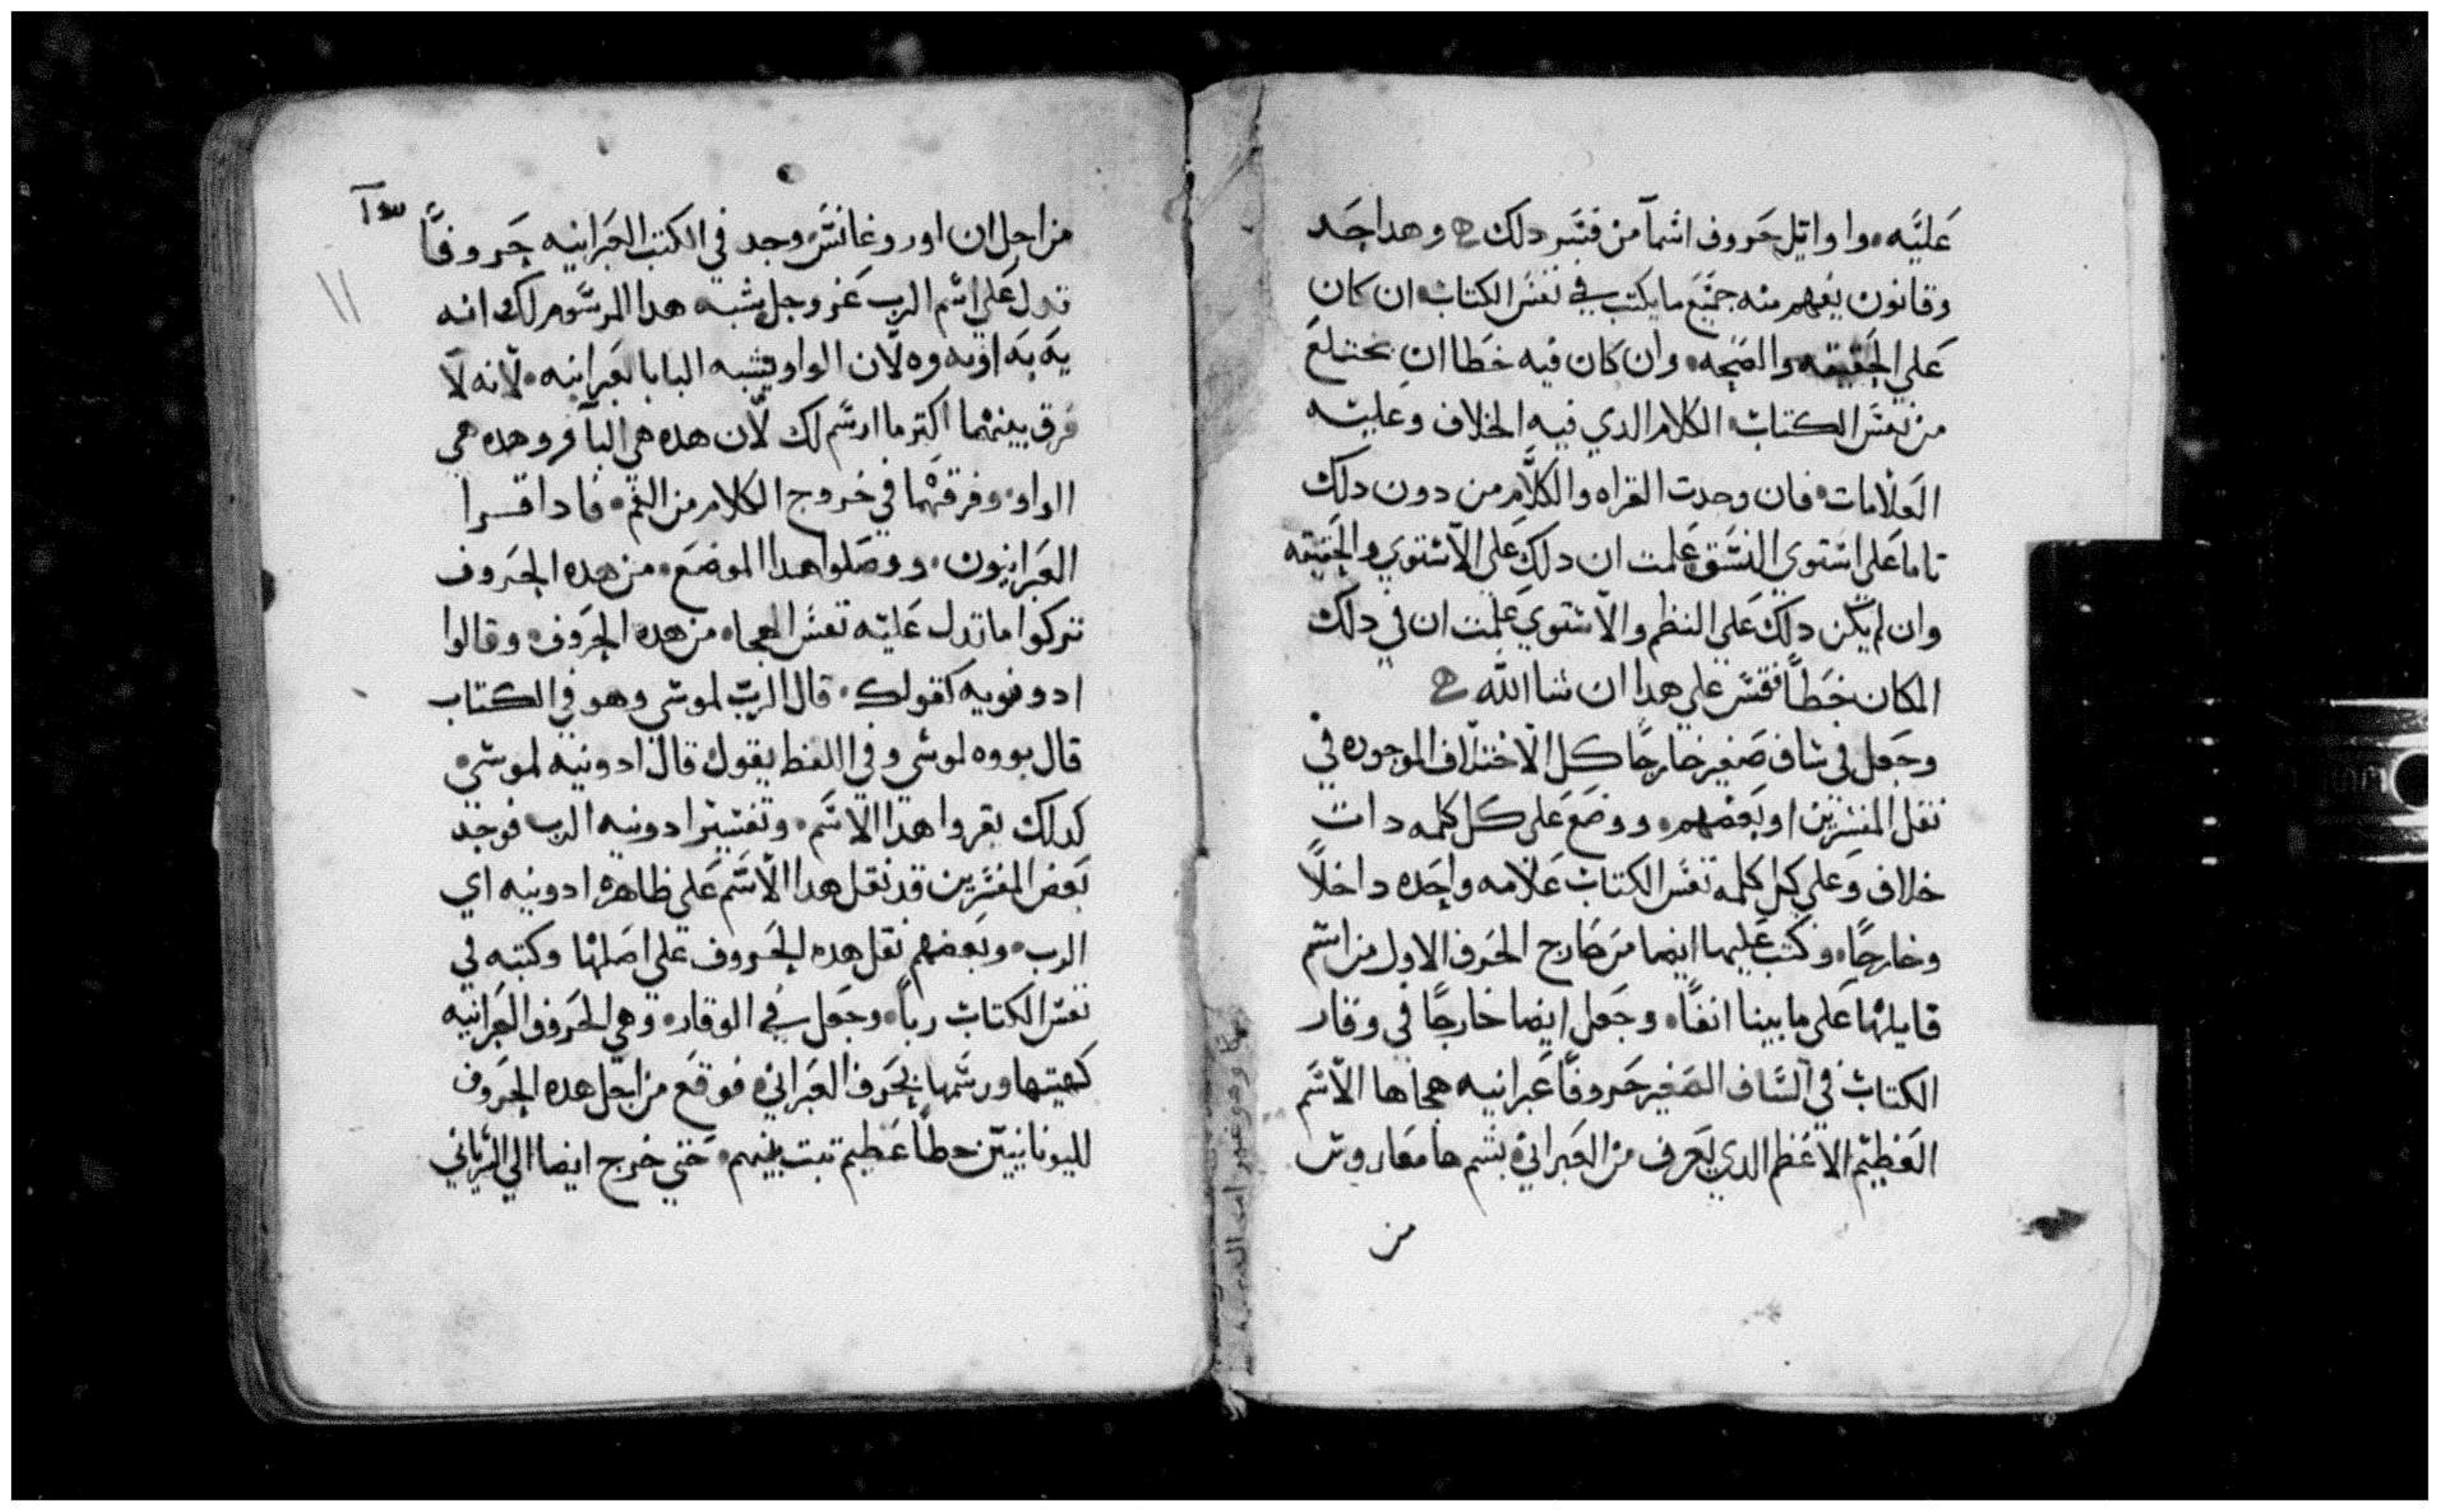 عليه، واوايل حروف اسمآ من فسر دلك ۞ وهدا حد
وقانون يفهم منه جميع ما يكتب في نفس الكتاب ان كان
علي الحقيقه والصحه، وان كان فيه خطا ان
من نفس الكتاب الكلام الدي فيه الخلاف وعليه
العلامات، فان وجدت القراه والكلام من دون دلك
تاما علي استوي النسق علمت ان دلك علي الاستوي والحقيقه
وان لم يكن دلك علي النظم والاستوي علمت ان في دلك
المكان خطاً فقس علي هدا ان شا الله ۞
وجعل في شاف صغير خارجًا كل الاختلاف الموجوده في
نقل المفسرين او بعضهم، ووضع علي كل كلمه دات
خلاف وعلي كل كلمه نفس الكتاب علامه واحده داخلاً
وخارجًا، وكتب عليها ايضا من خارج الحرف الاول من اسم
قايلها علي ما بينا انفًا، وجعل ايضا خارجًا في وقار
الكتاب في الشاف الصغير حروفًا عبرانيه هجاها الاسم
العظيم الاعظم الدي يعرف من العبراني بشم هامفاروش
من
من اجل ان اوروغانس وجد في الكتب العبرانيه حروفًا
تدل علي اسم الرب عز وجل يشبه هدا المرسوم لك انه
يه به اويه وه لان الواو يشبه البا بالعبرانيه، لانه لا
فرق بينهما اكتر ما ارسم لك لان هده هي البآ و وهده هي
الواو، وفرقهما في خروج الكلام من الفم، فادا قسرا
العبرانيون، ووصلوا هدا الموضع، من هده الحروف
تتركوا ما تدل عليه نفس الهجا، من هده الحروف، وقالوا
ادونويه كقولك، قال الرب لموسي وهو في الكتاب
قال يووه لموسي وفي اللفظ يقول قال ادونيه لموسي
كدلك يقروا هدا الاسم، وتفسير ادونيه الرب فوجد
بعض المفسرين قد نقل هدا الاسم علي ظاهره ادونيه اي
الرب، وبعضهم نقل هده الحروف علي اصلها وكتبه في
نفس الكتاب رباً، وجعل في الوقار، وهي الحروف العبرانيه
كهيتها ورسمها بحرف العبراني، فوقع من اجل هده الحروف
لليونانيين خطاً عظيم تبت بينهم، حتي خرج ايضا الي السرياني